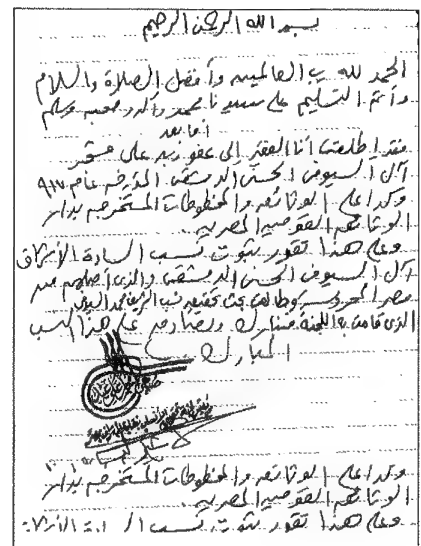 بسم الله الرحمن الرحيم
الحمد لله رب العالمين وأفضل الصلاة والسلام
وأتم التسليم على سيدنا محمد وآله وصحبه وسلم
أما بعد
فقد اطلعت أنا الفقير إلى عفو ربه على مشجر
آل السيوفي الحسني الدمشقي المؤرخ عام ٩١٧
وكذا على الوثائق والمخطوطات المستخرجه بدار
الوثائق القوميه المصريه.
وعلى هذا تقرر ثبوت نسب السادة الأشراف
آل السيوفي الحسني الدمشقي والذي أصلهم من
مصر المحروسه وطالعت بحث تحقيق نسب الشريف محمد
الذي قامت به اللجنة فنبارك ونصادق على هذا النسب
المبارك
وكذا على الوثائق والمخطوطات المستخرجه بدار
الوثائق القوميه المصريه.
وعلى هذا تقرر ثبوت نسب